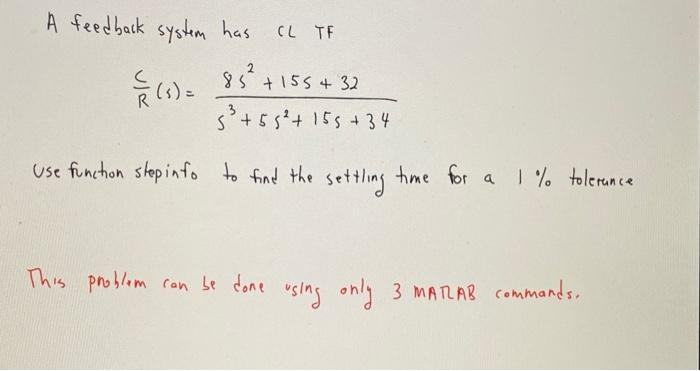 A feedback system has CL TF
C/R (s) = 8s² + 15s + 32 / s³ + 5s² + 15s + 34
Use function stepinfo to find the settling time for a 1% tolerance
This problem can be done using only 3 MATLAB commands.